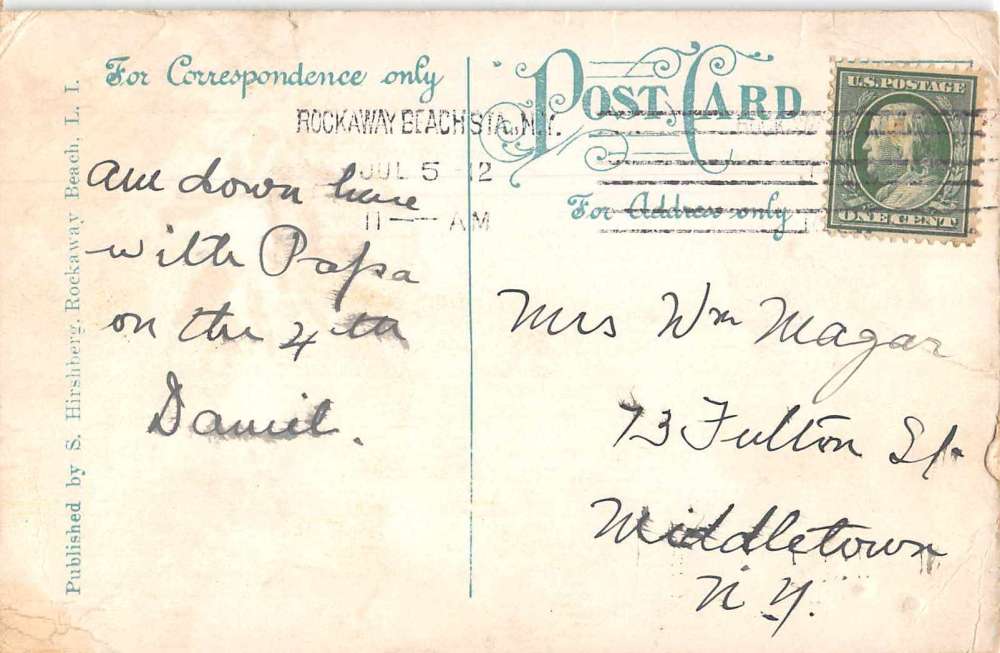 For Correspondence only
POST CARD
For Address only
U.S. POSTAGE
ONE CENT
ROCKAWAY BEACH STA., N.Y.
JUL 5 12
11 — AM
am down here
with Papa
on the 4th
Daniel.
Mrs Wm Magar
73 Fulton St.
Middletown
N Y.
Published by S. Hirshberg, Rockaway Beach, L. I.